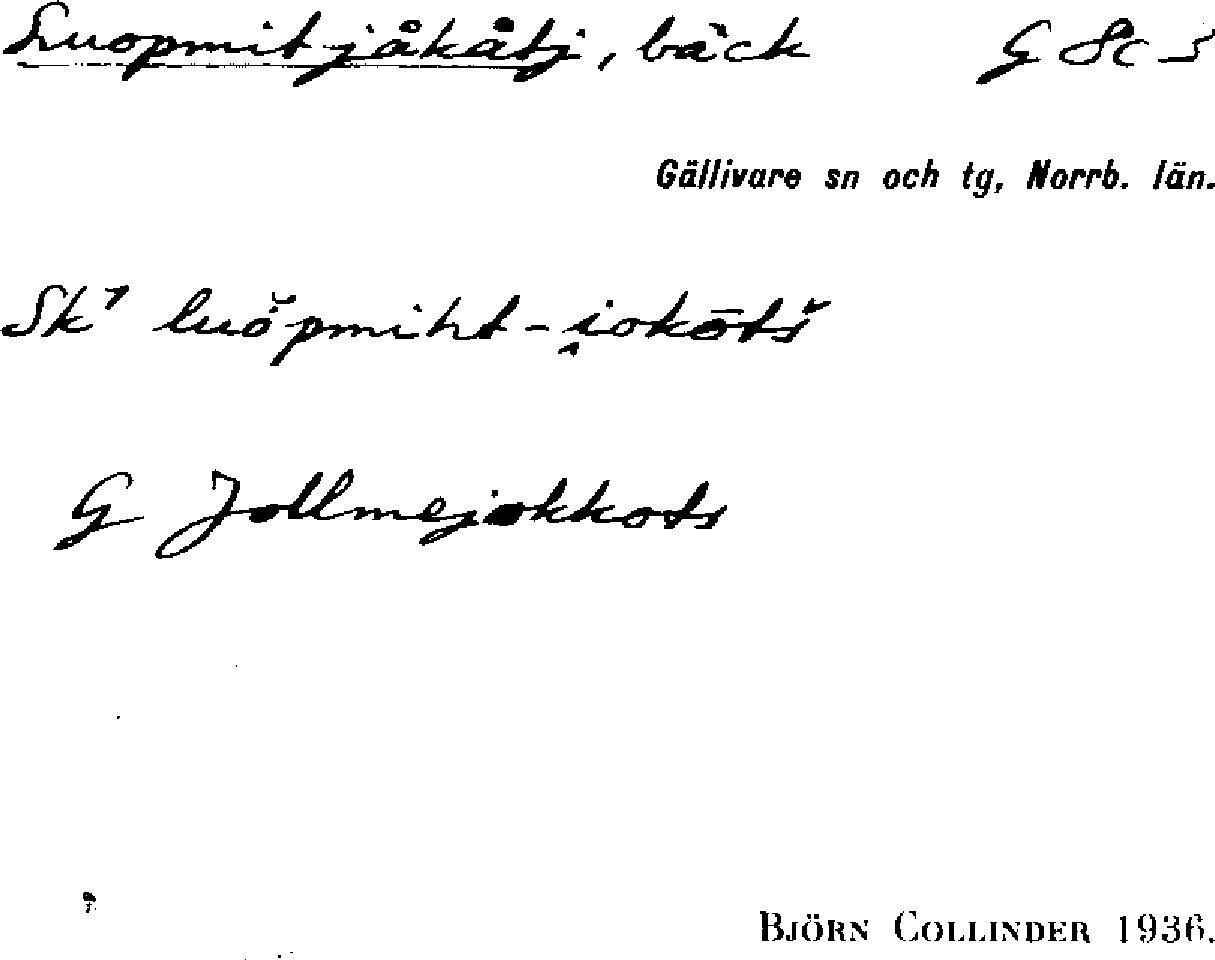 Luopmitjåkåtj, bäck G 8c S
Gällivare sn och tg, Norrb. län.
Sk¹ luŏ̤pmiht-i̯okōtš
G Jollmejokkots
BJÖRN COLLINDER 1936.